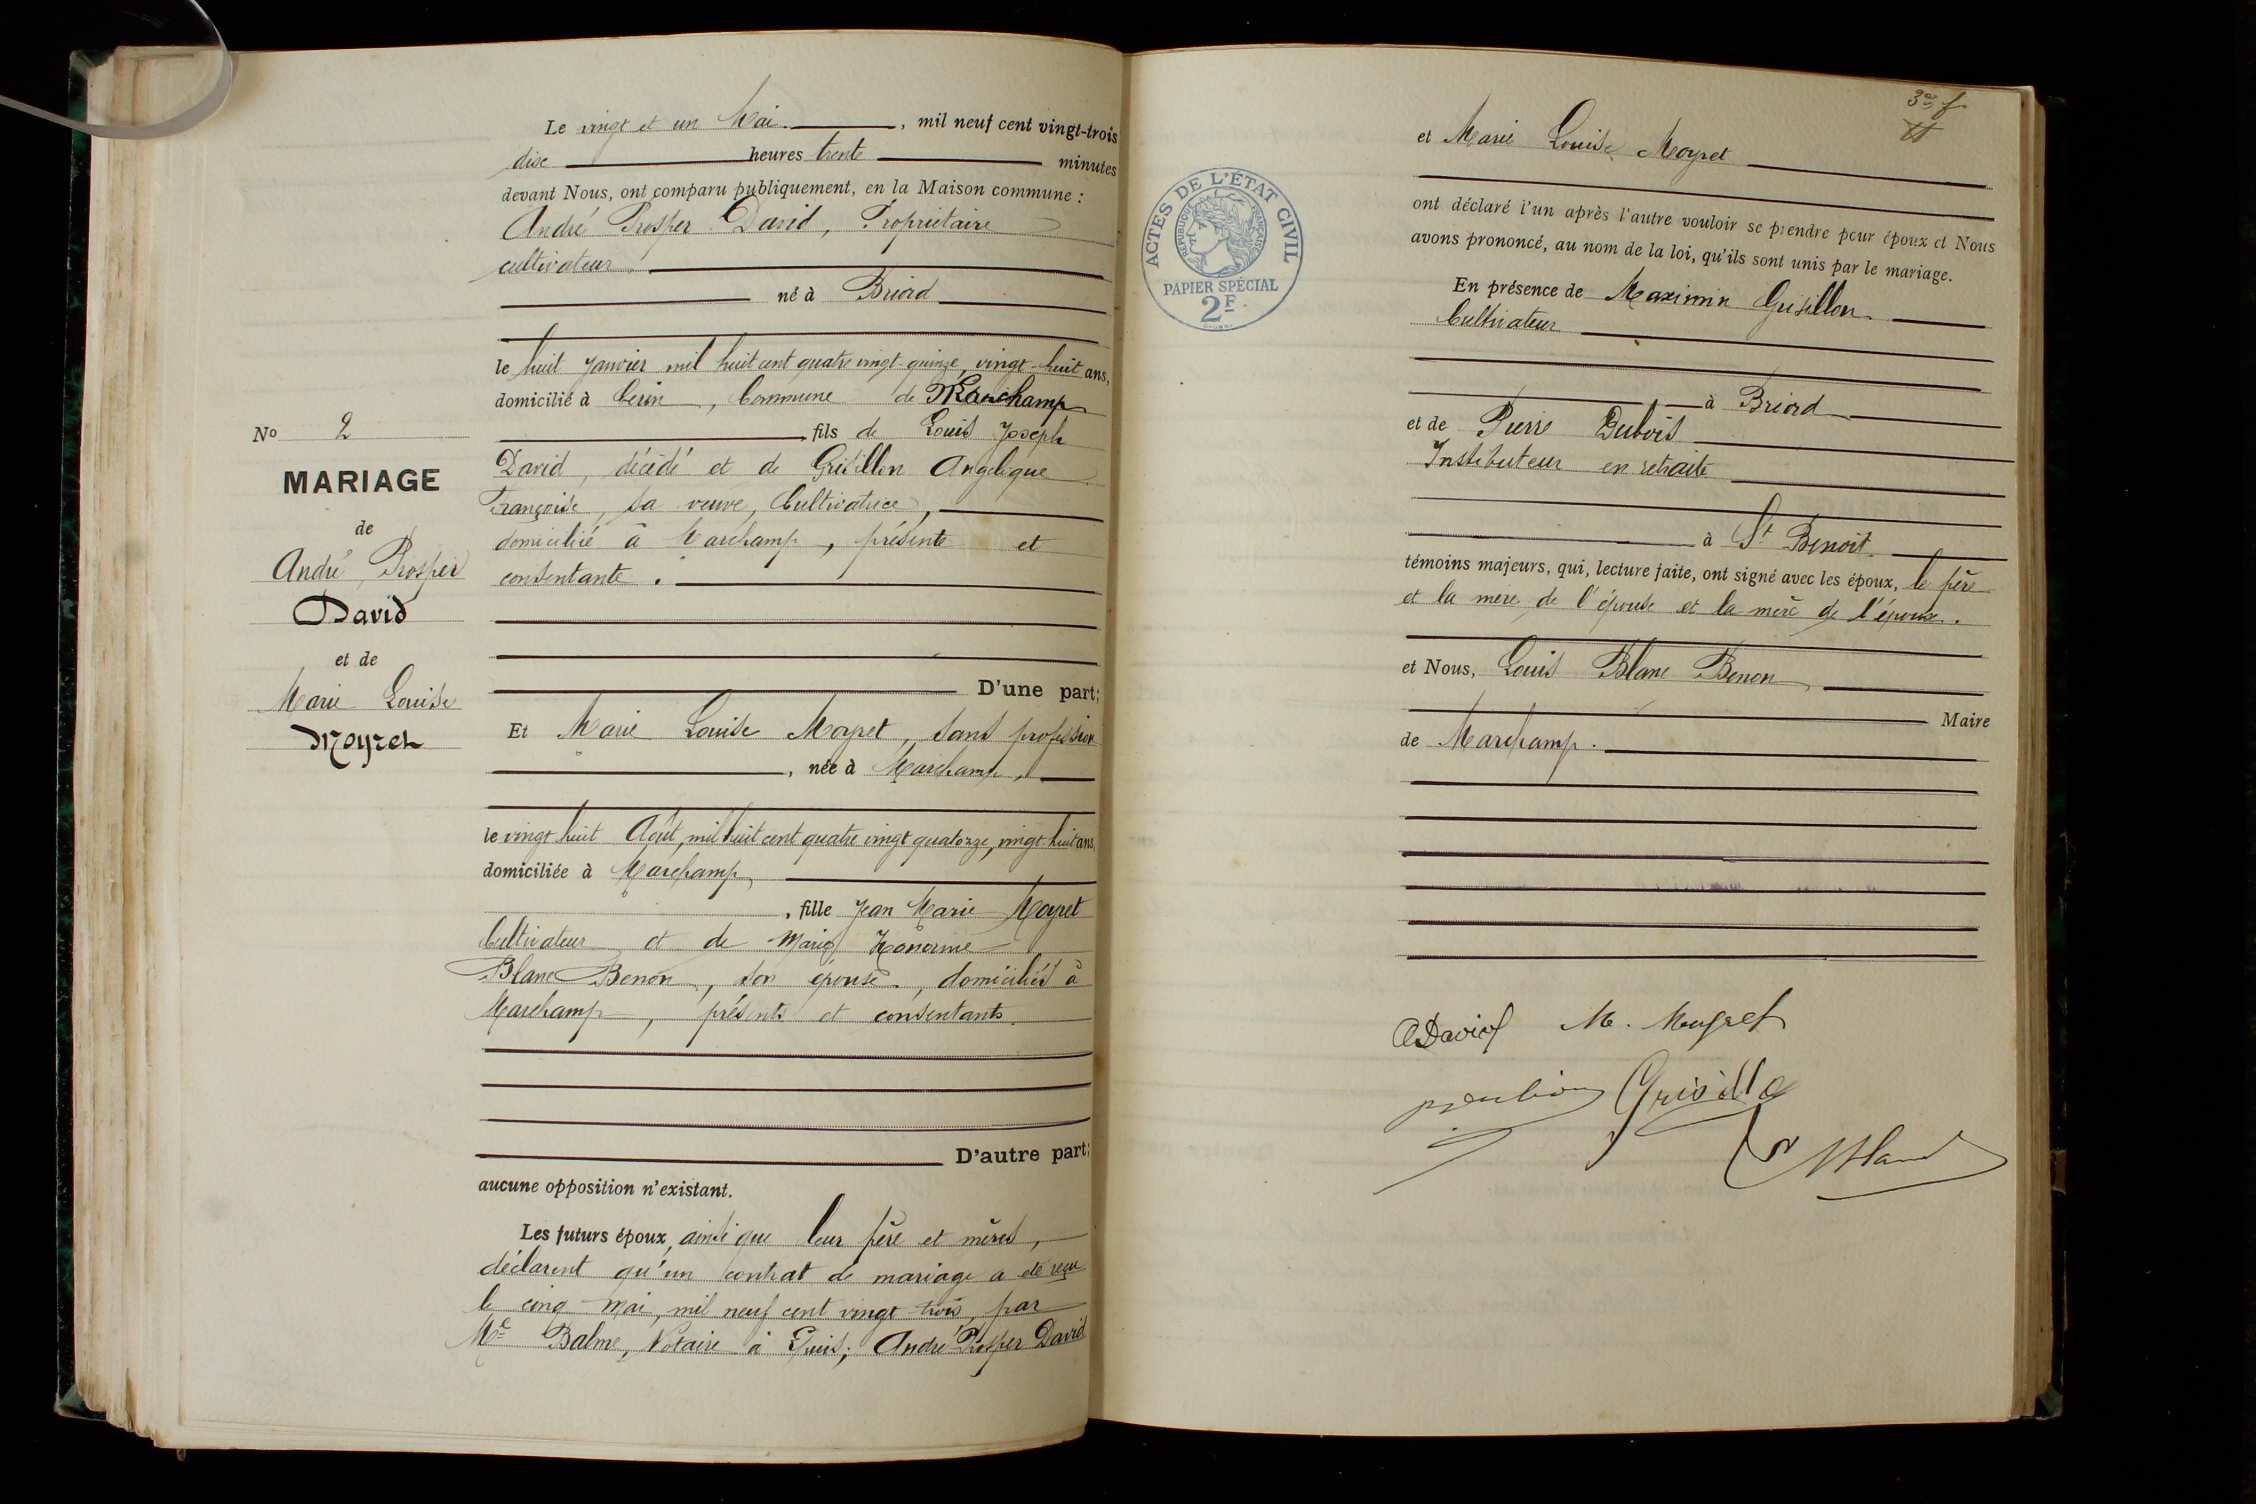 Le vingt et un Mai, mil neuf cent vingt-trois
dix heures trente minutes
devant Nous, ont comparu publiquement, en la Maison commune :
André Prosper David, Propriétaire
cultivateur
né à Briord
le huit Janvier mil huit cent quatre vingt-quinze, vingt-huit ans,
domicilié à Cerin, Commune de Marchamp
fils de Louis Joseph
David, décédé et de Grisillon Angelique
Françoise, sa veuve, Cultivatrice,
domiciliée à Marchamp, présente et
consentante.
D'une part;
Et Marie Louise Moyret, sans profession
, née à Marchamp,
le vingt huit Août, mil huit cent quatre vingt quatorze, vingt-huit ans,
domiciliée à Marchamp
, fille Jean Marie Moyret
Cultivateur et de Marie Honorine
Blanc Benon, son épouse, domiciliés à
Marchamp, présents et consentants.
D'autre part;
aucune opposition n'existant.
Les futurs époux, ainsi que leur père et mères,
déclarent qu'un contrat de mariage a été reçu
le cinq Mai, mil neuf cent vingt-trois, par
Me Balme, Notaire à Lhuis; André Prosper David
No 2
MARIAGE
de
André Prosper
David
et de
Marie Louise
Moyret
3e f
et Marie Louise Moyret
ont déclaré l'un après l'autre vouloir se prendre pour époux et Nous
avons prononcé, au nom de la loi, qu'ils sont unis par le mariage.
En présence de Maximin Grisillon
Cultivateur
à Briord
et de Pierre Dubois
Instituteur en retraite
à St Benoit
témoins majeurs, qui, lecture faite, ont signé avec les époux, le père
et la mère de l'épouse et la mère de l'époux.
et Nous, Louis Blanc Benon
Maire
de Marchamp.
ACTES DE L'ÉTAT CIVIL
RÉPUBLIQUE FRANÇAISE
PAPIER SPÉCIAL
2F
A David M. Moyret
Grisillo
Blanc